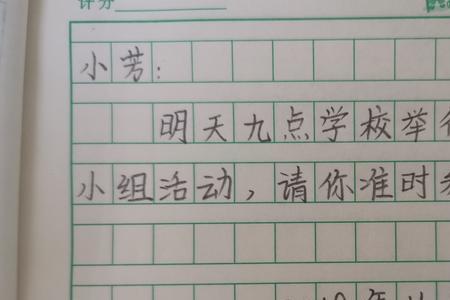 评分
小芳：
明天九点学校举
小组活动，请你准时
年